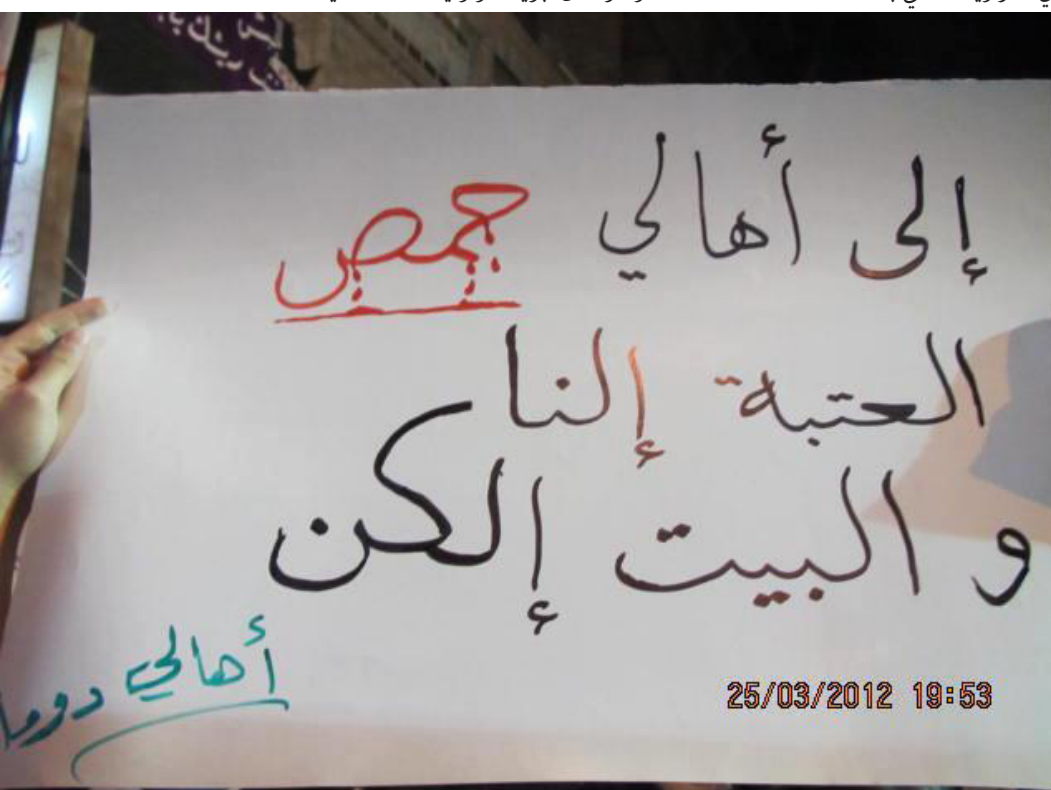 إلى أهالي حمص
العتبة إلنا
و البيت إلكن
أهالي دوما
25/03/2012 19:53